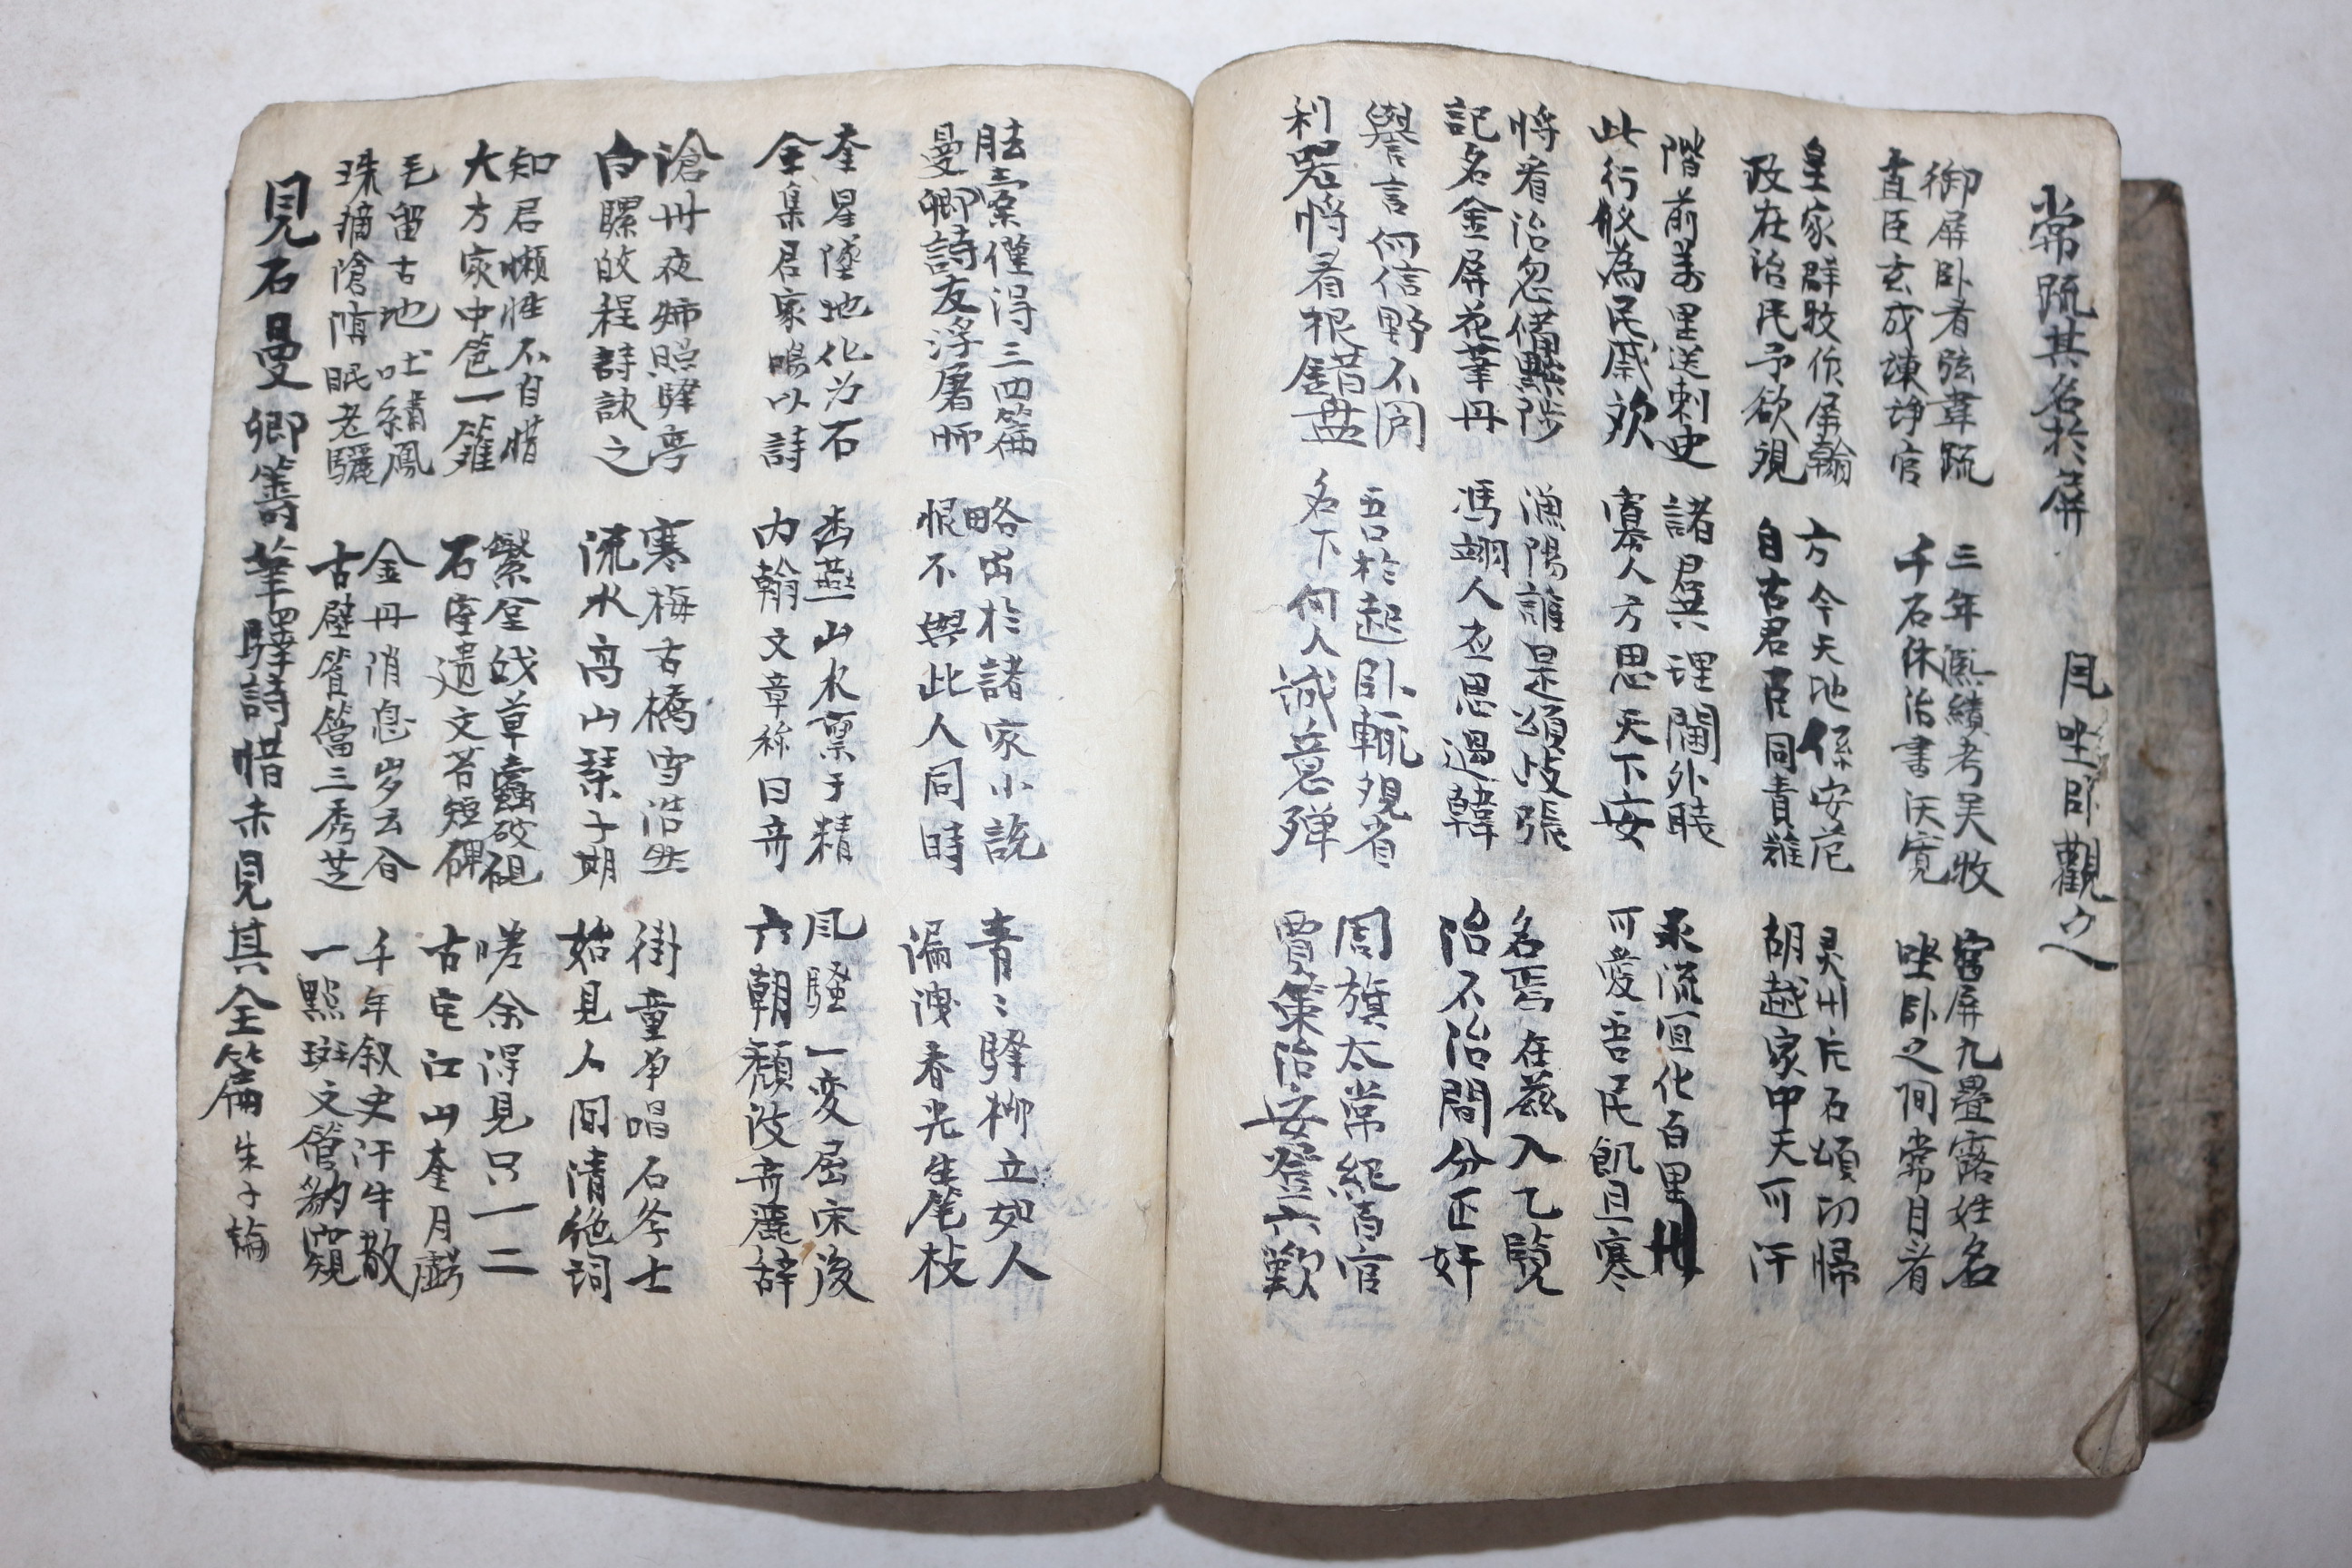 常䟽其名於屏 凡坐卧觀之
御屏卧者弦韋䟽 三年凞績考吴牧 宫屏九疊露姓名
直臣玄成諫諍官 千石休治書沃寛 坐卧之间常目看
皇家群牧价屏翰 方今天地係安范 灵州片石頌功歸
政在治民予欲視 自古君臣同責難 胡越家中天可汗
階前萬里送刺史 諸君異理閫外 承流宣化百里州
此行般為民戚欢 寡人方思天下安 可愛吾民飢且寒
將看治忽備黜陟 漁陽誰是頌岐張 名焉在茲入乙覧
記名金屏花筆丹 馮翊人在思過韓 治不治間分正奸
譽言何信野不罔 吾於起卧輒观省 周旗太常紀百官
利器將看根錯盘 名下何人誠意殫 賈策治安登六歎
胠案僅得三四篇 略出於諸家小説 青〻驛柳立如人
曼卿詩友浮屠師 恨不與此人同時 漏洩春光生尾枝
奎星墜地化为石 幽燕山水禀于精 凨騷一変屈宋後
全集君家鳴以詩 内翰文章称曰奇 六朝頽波奇麗辞
滄州夜姉照驛亭 寒梅古橋雪浩然 街童争唱石学士
白騾故程詩訣之 流水高山琴子期 始見人间清絶词
知君懶性不自惜 繄全戗草蠧破硯 嗟余得見只一二
大方家中爸一籬 石室遗文苔短碑 古宅江山奎月虧
毛留古地吐繡鳳 金丹消息岁云合 千年叙史汗牛散
珠摘隂隋眠老驪 古壁篔簹三秀芝 一點斑文管豹窺
見石曼卿籌筆驛詩惜未見其全篇 朱子論